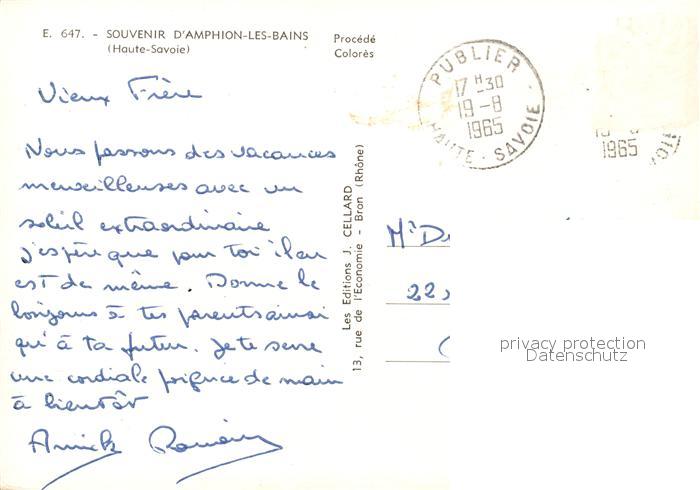 E. 647. - SOUVENIR D'AMPHION-LES-BAINS
(Haute-Savoie)
Procédé
Colorès
PUBLIER
17 H 30
19 - 8
1965
HAUTE - SAVOIE
1965
Vieux Frère
Nous passons des vacances
merveilleuses avec un
soleil extraordinaire
j'espère que pour toi il en
est de même. Donne le
à tes parents ainsi
qu'à ta futur. Je te serre
une cordiale poignée de main
à bientôt
Annick Romain
Les Editions J. CELLARD
13, rue de l'Economie - Bron (Rhône)
Mr D
22
privacy protection
Datenschutz